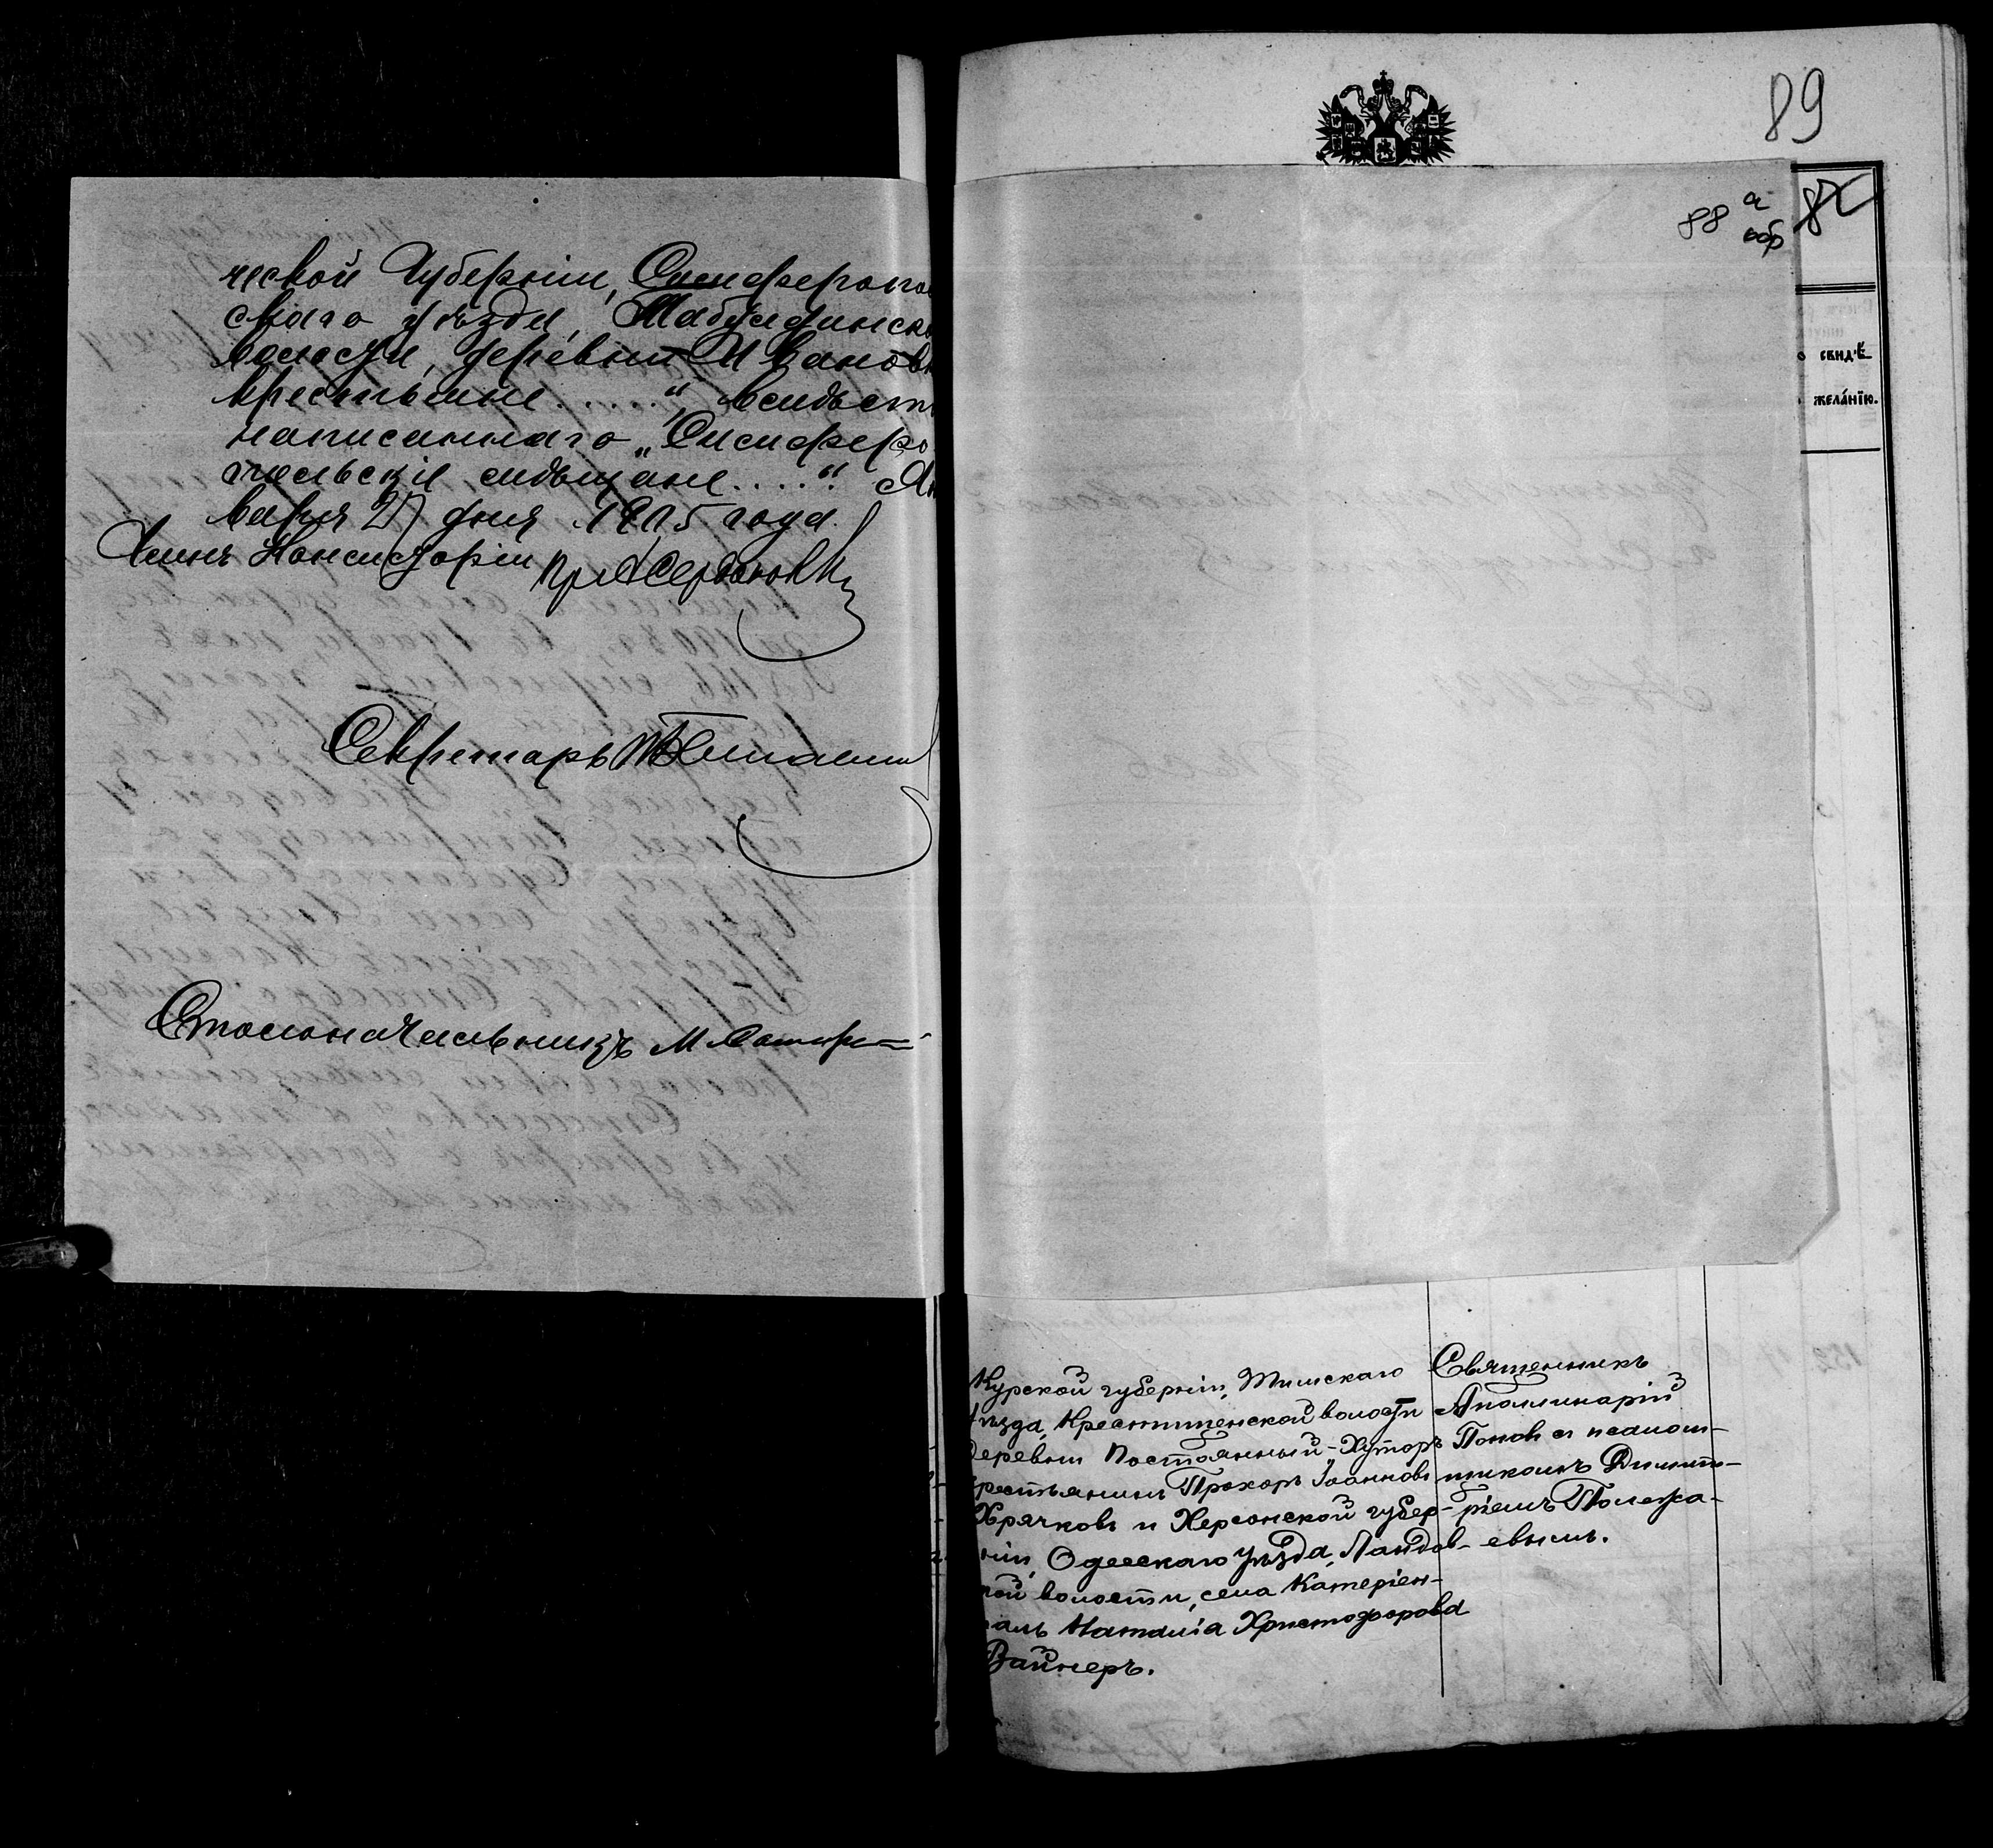 ческой Губерніи, Симферопо
скаго уѣзда, Табулдинск
волости, деревни Иванов
крестьяне ....." вслѣдст
написаннаго „Симферо
польскіе мѣщане....". Ян
варя 27 дня 1915 года.
Членъ Консисторіи
Секретарь
Столоначальникъ М.
89
88 а
обр
СВИД'Ѣ
ЖЕЛА́НІЮ.
Курской губерніи, Тимскаго
уѣзда, Крестищенской волости
деревни Постоянный-Хуторъ
крестьянинъ Прохоръ Іоанновъ
Хрячковъ и Херсонской губер-
ніи, Одесскаго уѣзда, Ландов-
кой волости, села Катеріен-
таль Наталіа Христофорова
Вайнеръ.
Священникъ
Аполлинарій
Поповъ съ псаломъ-
щикомъ Димит-
ріемъ Полежа-
евымъ.